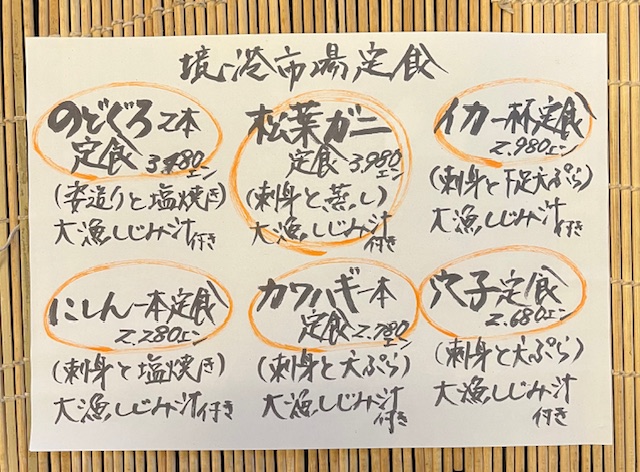 境港市場定食
のどぐろ2本
定食 3.980
エン
(姿造りと塩焼き)
大漁しじみ汁
付き
松葉ガニ
定食 3.980
エン
(刺身と蒸し)
大漁しじみ汁
付き
イカ一杯定食
2.980エン
(刺身と下足天ぷら)
大漁しじみ汁
付き
にしん一本定食
2.280エン
(刺身と塩焼き)
大漁しじみ汁付き
カワハギ一本
定食 2.780
エン
(刺身と天ぷら)
大漁しじみ汁
付き
穴子定食
2.680エン
(刺身と天ぷら)
大漁しじみ汁
付き